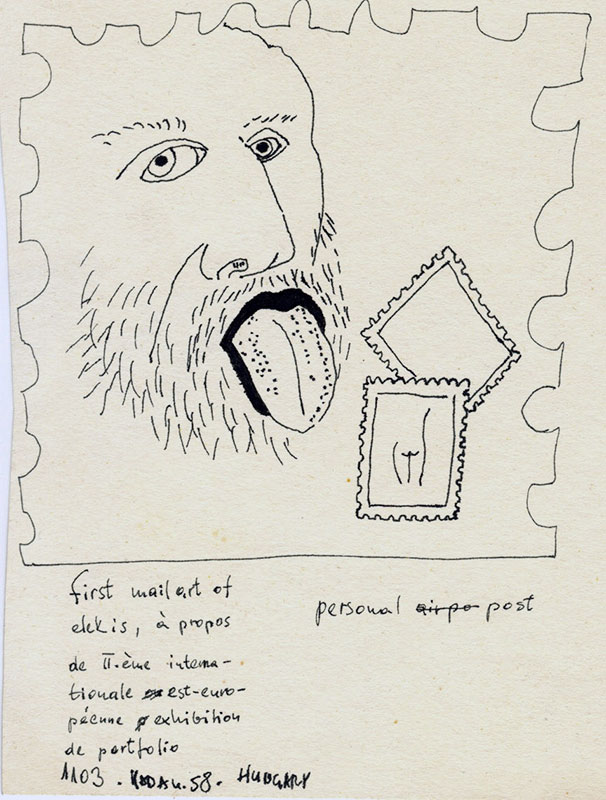 first mail art of
ekkis, à propos
de II.ème interna-
tionale est-euro-
péenne exhibition
de portfolio
1103. 58. HUNGARY
personal airpo post